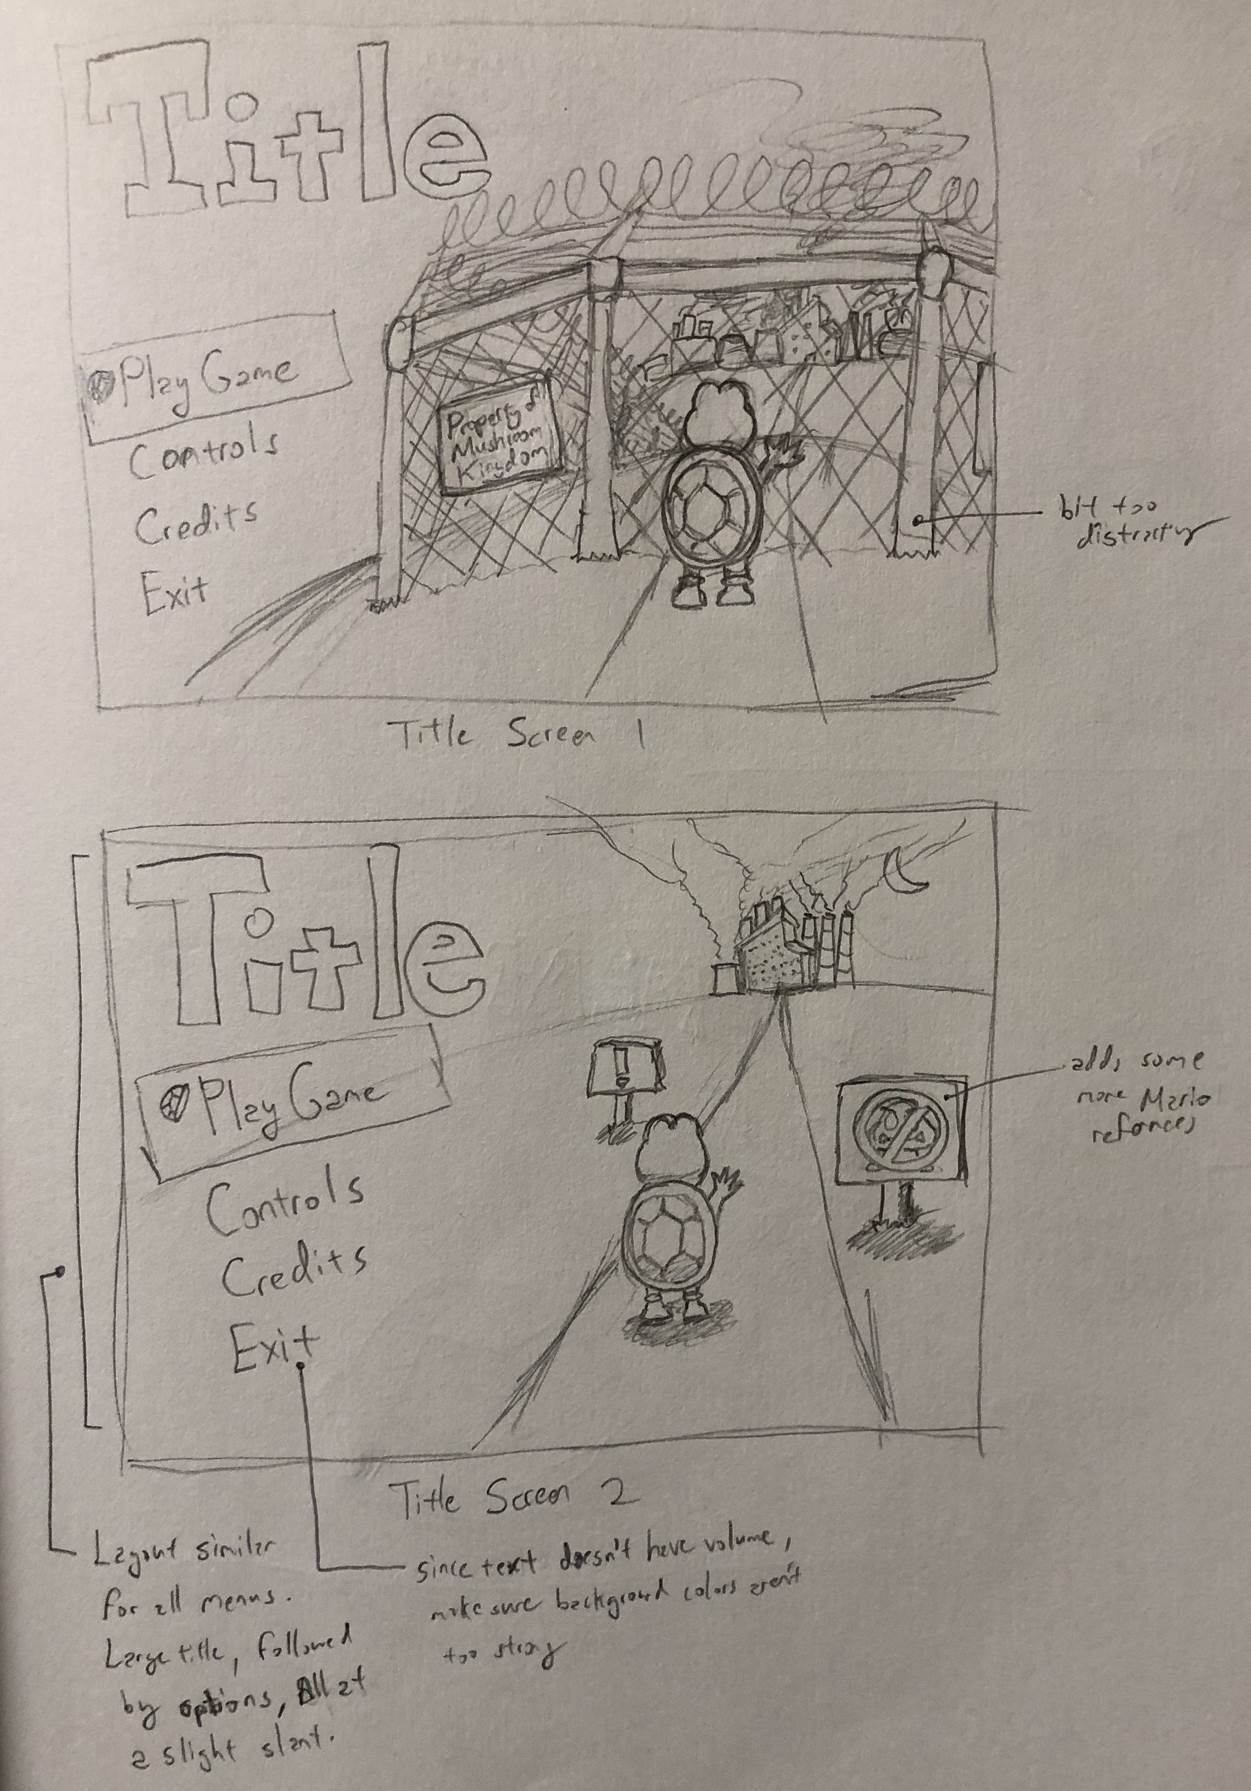 Title
Play Game
Controls
Credits
Exit
Property of
Mushroom
Kingdom
bit too
distracting
Title Screen 1
Title
Play Game
Controls
Credits
Exit
!
adds some
more Mario
refrences
Title Screen 2
Layout similar
for all menus.
Large title, followed
by options, All at
a slight slant.
since text doesn't have volume,
make sure background colors aren't
too strong